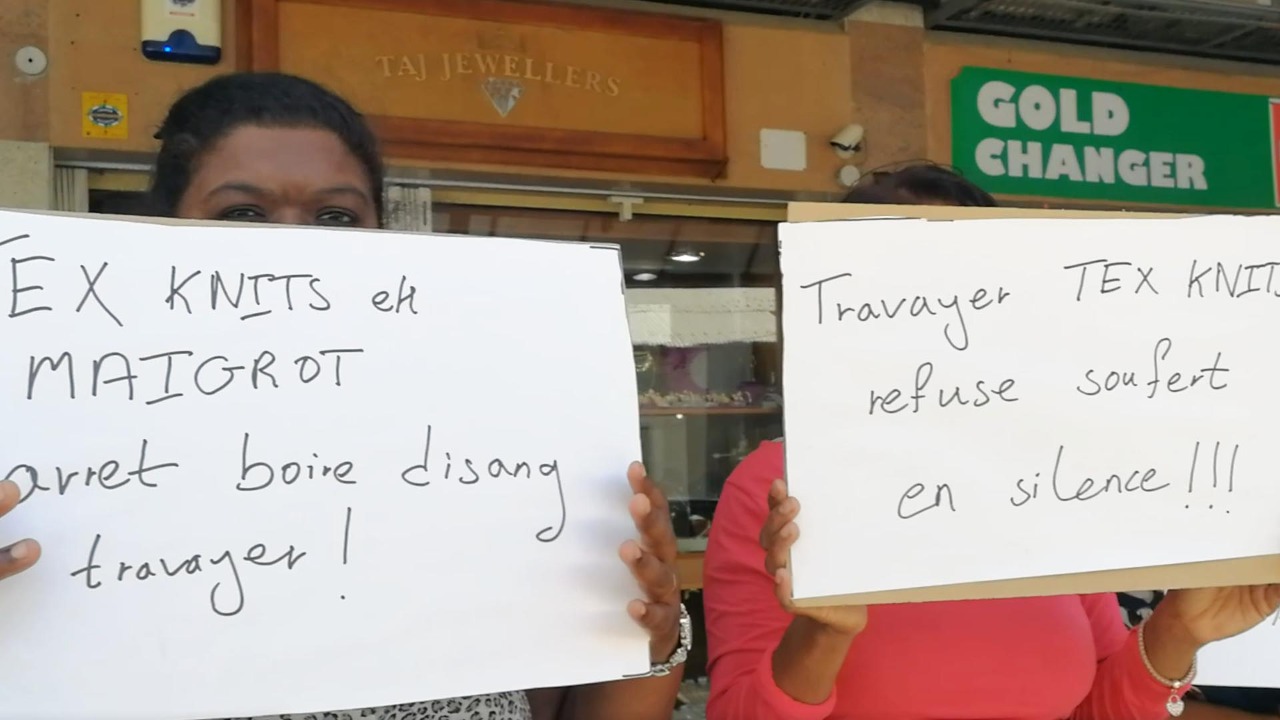 TAJ JEWELLERS
GOLD
CHANGER
TEX KNITS ek
MAIGROT
arret boire disang
travayer!
Travayer TEX KNITS
refuse soufert
en silence!!!